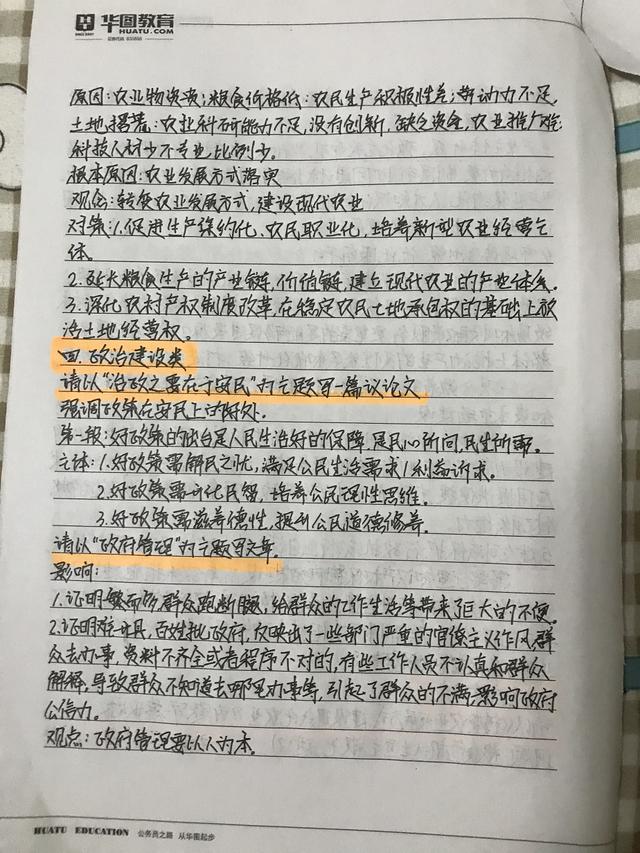 华图教育
HUATU.COM
原因:农业物资贵;粮食价格低:农民生产积极性差;劳动力不足,
土地撂荒:农业科研能力不足,没有创新,缺乏资金,农业推广难:
科技人材少不专业比例少。
根本原因:农业发展方式落
观念:转变农业发展方式,建设现代农业
对策:1.促进生产集约化、农民职业化,培养新型农业经营主
体。
2.延长粮食生产的产业链,价值链,建立现代农业的产业体系。
3.深化农村产权制度改革,在稳定农民土地承包权的基础上放
活土地经营权。
四.政治建设类
请以“治政之要在于安民”为主题写一篇议论文
强调政策在安民上的好处。
第一段:好政策的出台是人民生活好的保障,是民心所向,民生所需。
主体:1.好政策需解民之忧,满足公民生活需求/利益诉求。
2.好政策需开化民智,培养公民理性思维。
3.好政策需滋养德性,提升公民道德修养。
请以“政府管理”为主题写文章。
影响:
1.证明繁而多,群众跑断腿,给群众的工作生活等带来了巨大的不便。
2.证明难开具,百姓批政府,反映出了一些部门严重的官僚主义作风,群
众去办事,资料不齐全或者程序不对的,有些工作人员不认真和群众
解释,导致群众不知道去哪里办事等,引起了群众的不满,影响政府
公信力。
观点:政府管理要以人为本。
HUATU EDUCATION 公务员之路 从华图起步